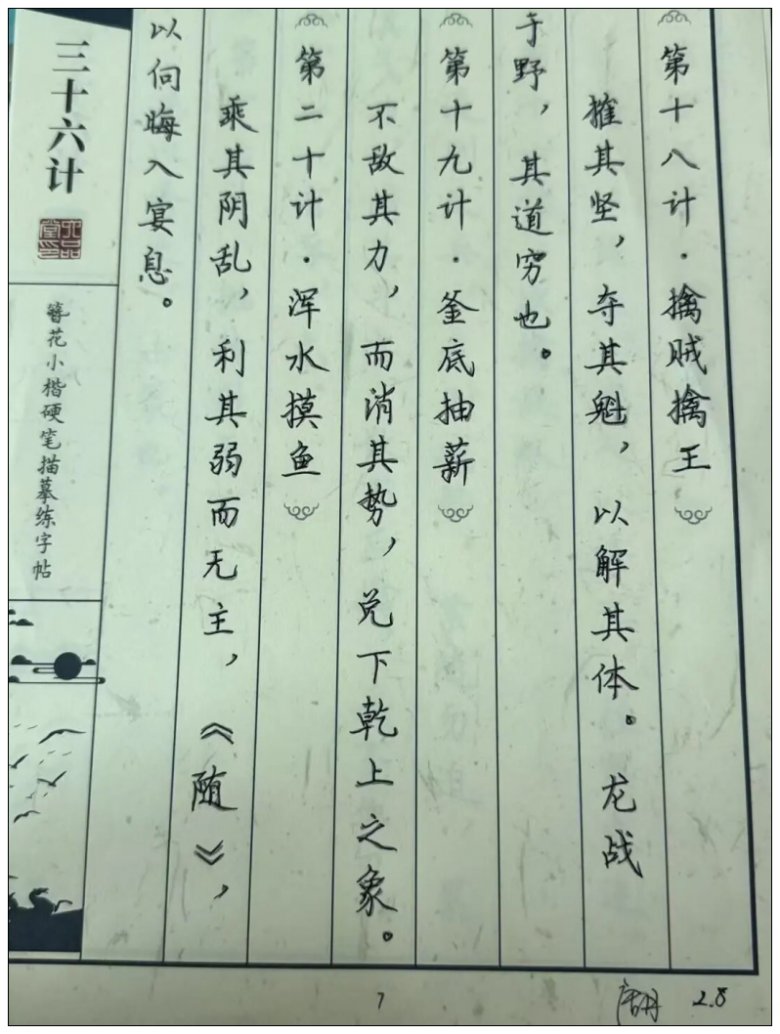 第十八计·擒贼擒王
摧其坚，夺其魁，以解其体。龙战
于野，其道穷也。
第十九计·釜底抽薪
不敌其力，而消其势，兑下乾上之象。
第二十计·浑水摸鱼
乘其阴乱，利其弱而无主，《随》，
以向晦入宴息。
三十六计
簪花小楷硬笔描摹练字帖
7
2.8